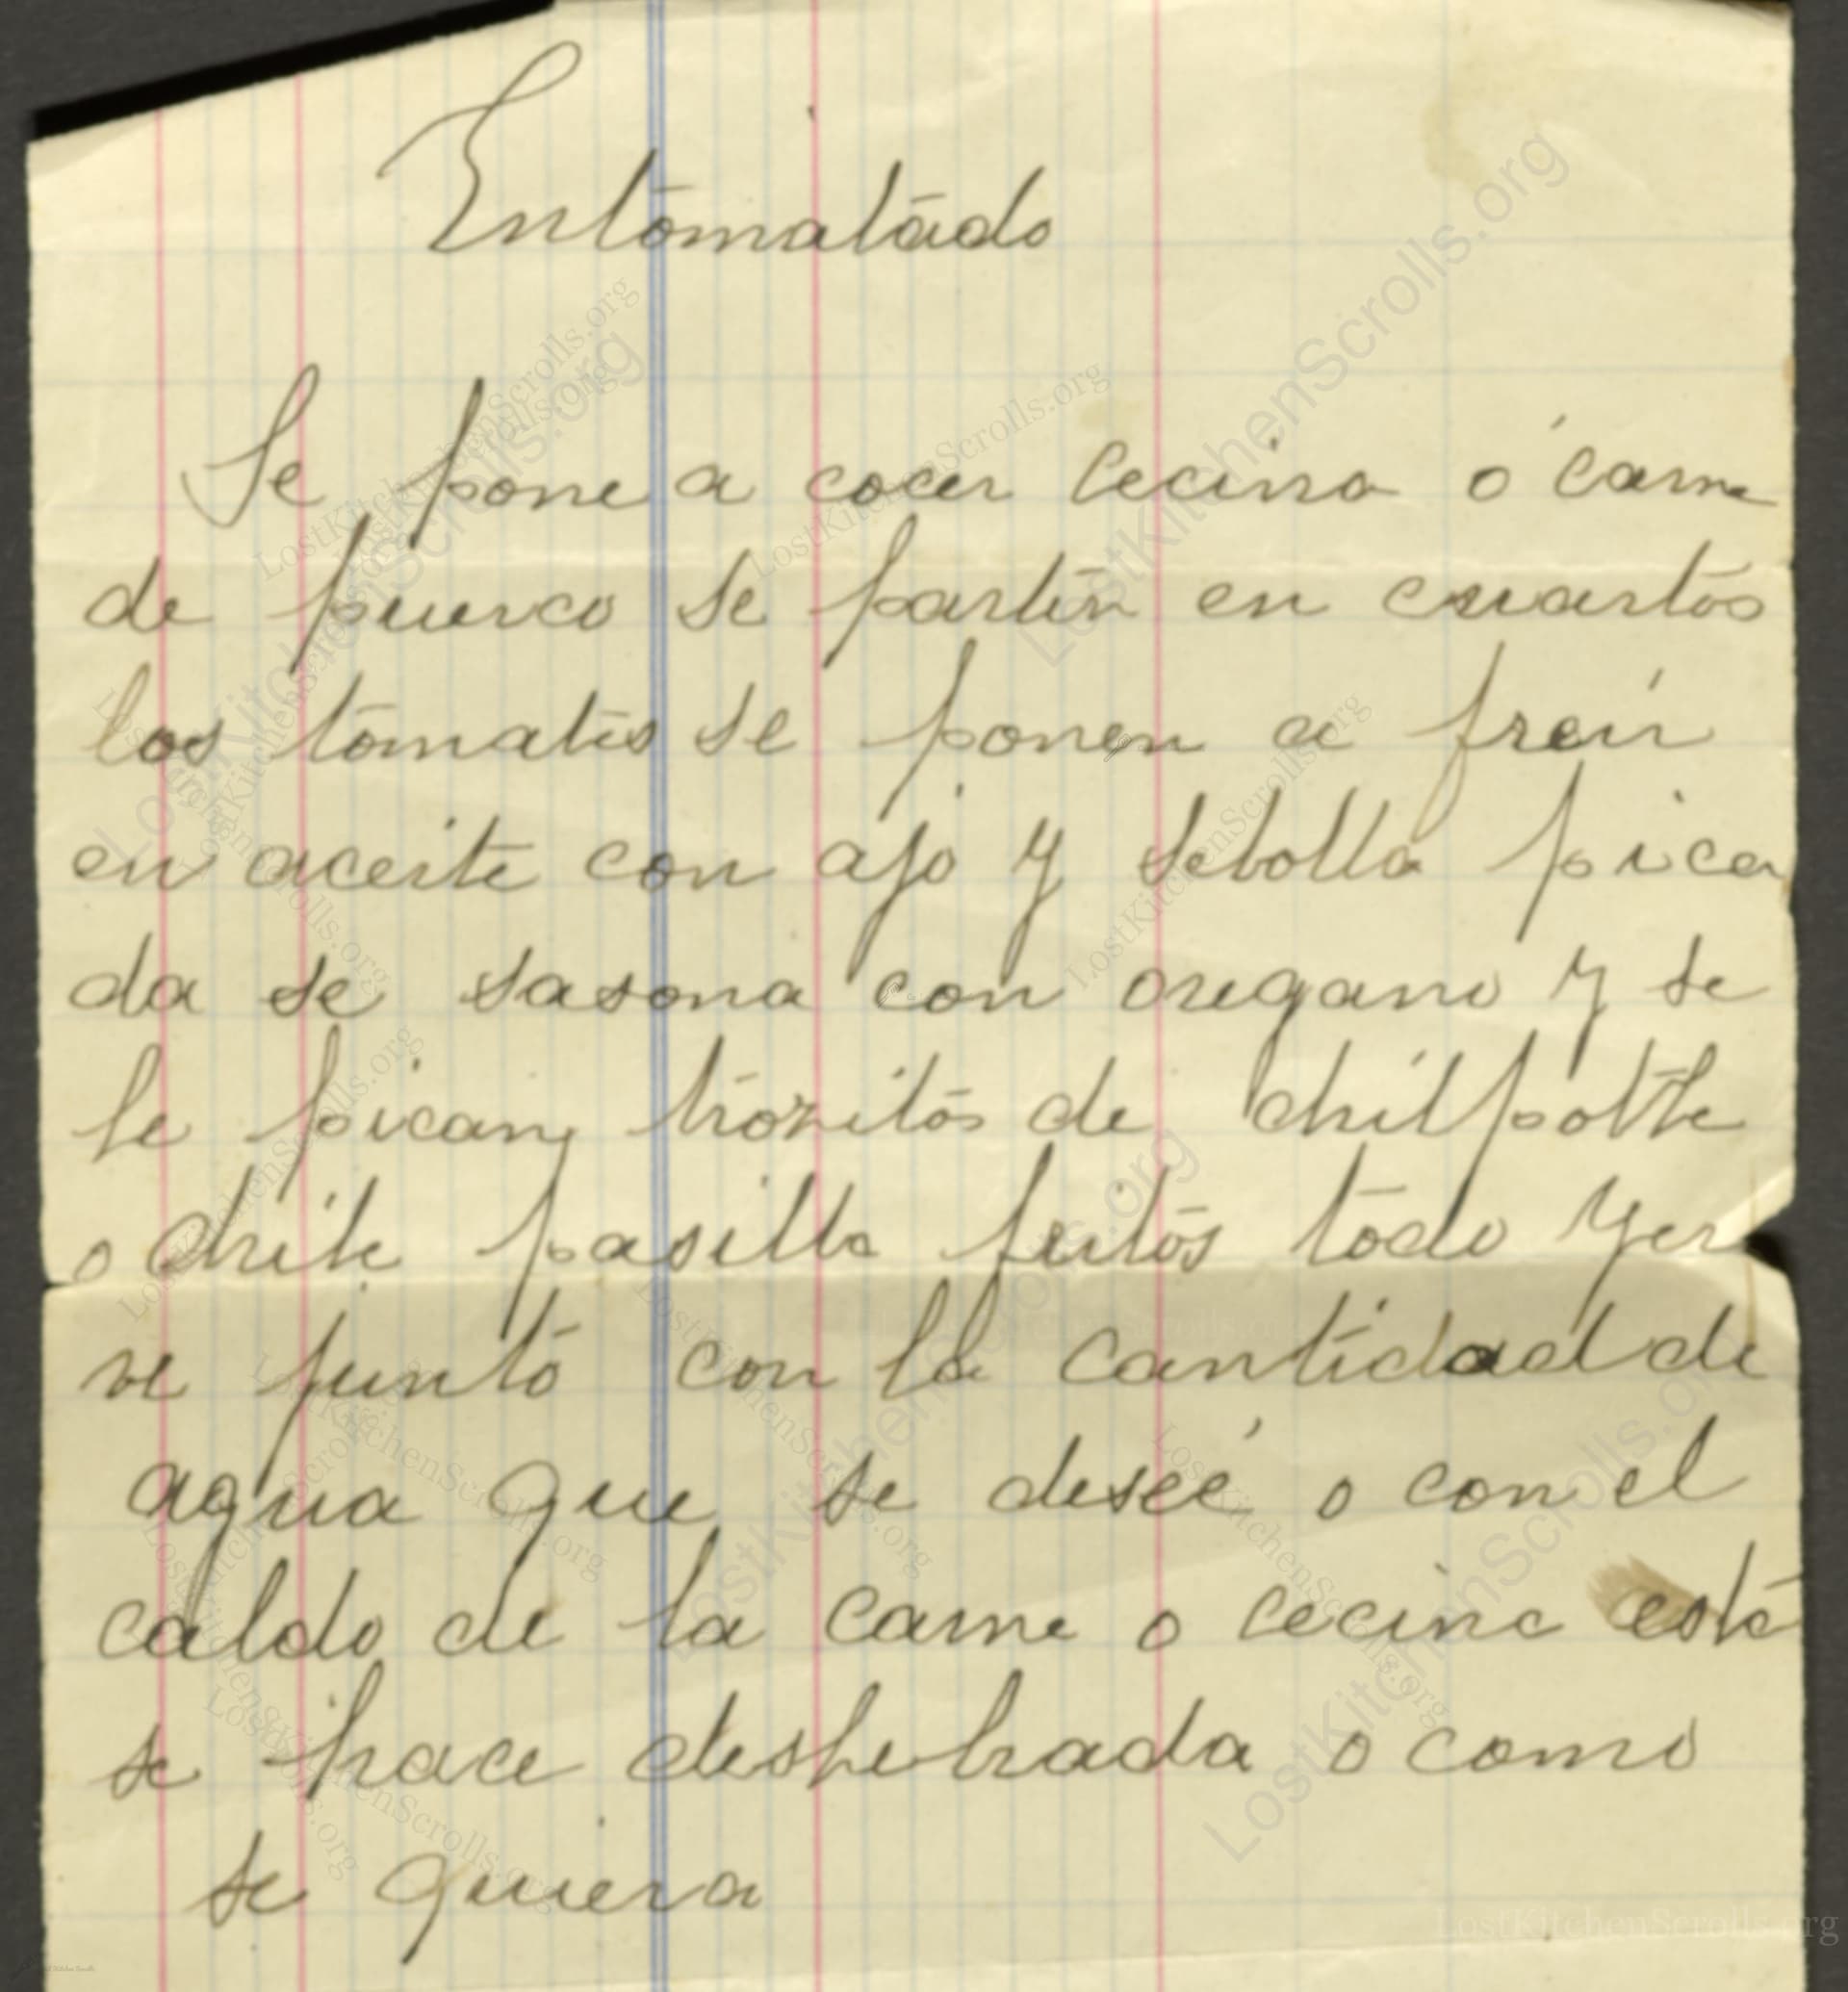 Entomatado
Se pone a cocer cecina o carne
de puerco se parten en cuartos
los tomates se ponen a freír
en aceite con ajo y sebolla pica
da se sasona con oregano y se
le pican trozitos de chilpotle
o chile pasilla fritos todo yer
ve junto con la cantidad de
agua que se deseé o con el
caldo de la carne o cecina está
se hace deshebrada o como
se quiera
LostKitchenScrolls.org